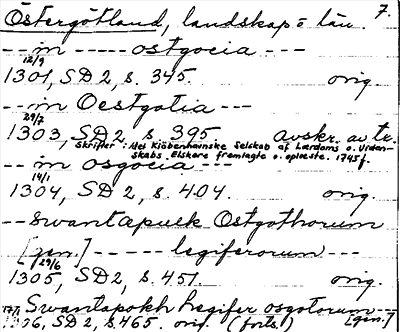 Östergötland, landskap o län. 7.
-- in ----- ostgocia ---
12/9
1301, SD 2, s. 345. orig.
-- in Oestgotia ---
29/7
1303, SD 2, s. 395. avskr. av tr.
Skrifter i det Kiøbenhavnske Selskab af Lærdoms o. Viden-
skabs Elskere fremlagte o. oplæste. 1745 f.
-- in osgocia ---
14/1
1304, SD 2, s. 404. orig.
-- Swantapulk Ostgothorum
[gen.] ----- legiferorum ---
29/6
1305, SD 2, s. 451. orig.
Swantapokh legifer osgotorum --
1306, SD 2, s. 465. orig. (forts.) [gen.]